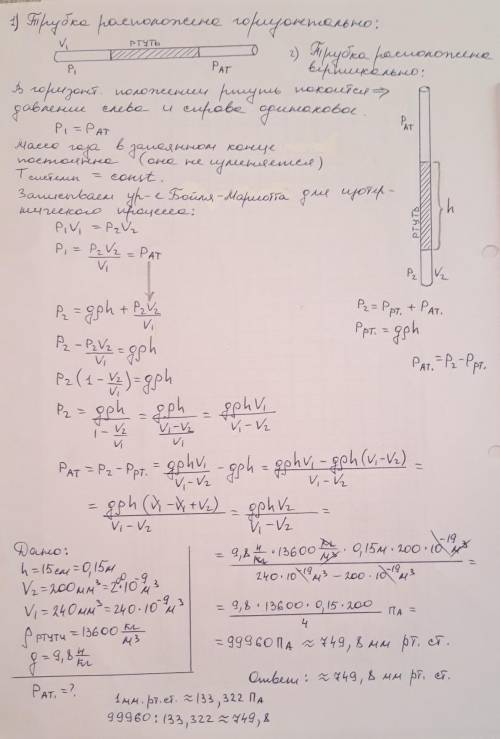 1) Трубка расположена горизонтально:
V₁ РТУТЬ
P₁ P_АТ
2) Трубка расположена
вертикально:
В горизонт. положении ртуть покоится ⇒
давление слева и справа одинаковое.
P₁ = P_АТ
Масса газа в запаянном конце
постоянна (она не изменяется)
T системы = const.
Записываем ур-е Бойля-Мариотта для изотер-
мического процесса:
P₁V₁ = P₂V₂
P₁ = P₂V₂/V₁ = P_АТ
P_АТ
РТУТЬ
h
P₂ V₂
P₂ = P_рт. + P_АТ.
P_рт. = gρh
P_АТ. = P₂ - P_рт.
P₂ = gρh + P₂V₂/V₁
P₂ - P₂V₂/V₁ = gρh
P₂ (1 - V₂/V₁) = gρh
P₂ = gρh/(1 - V₂/V₁) = gρh/((V₁-V₂)/V₁) = gρhV₁/(V₁-V₂)
P_АТ = P₂ - P_рт. = gρhV₁/(V₁-V₂) - gρh = (gρhV₁ - gρh(V₁-V₂))/(V₁-V₂) =
= gρh(V₁-V₁+V₂)/(V₁-V₂) = gρhV₂/(V₁-V₂) =
Дано:
h = 15см = 0,15м
V₂ = 200мм³ = 200·10⁻⁹м³
V₁ = 240мм³ = 240·10⁻⁹м³
ρ ртути = 13600 кг/м³
g = 9,8 н/кг
P_АТ. = ?
= (9,8 н/кг · 13600 кг/м³ · 0,15м · 200·10⁻¹⁹м³)/(240·10⁻¹⁹м³ - 200·10⁻¹⁹м³) =
= (9,8 · 13600 · 0,15 · 200)/4 Па =
= 99960Па ≈ 749,8 мм рт. ст.
Ответ: ≈ 749,8 мм рт. ст.
1мм.рт.ст. ≈ 133,322 Па
99960 : 133,322 ≈ 749,8